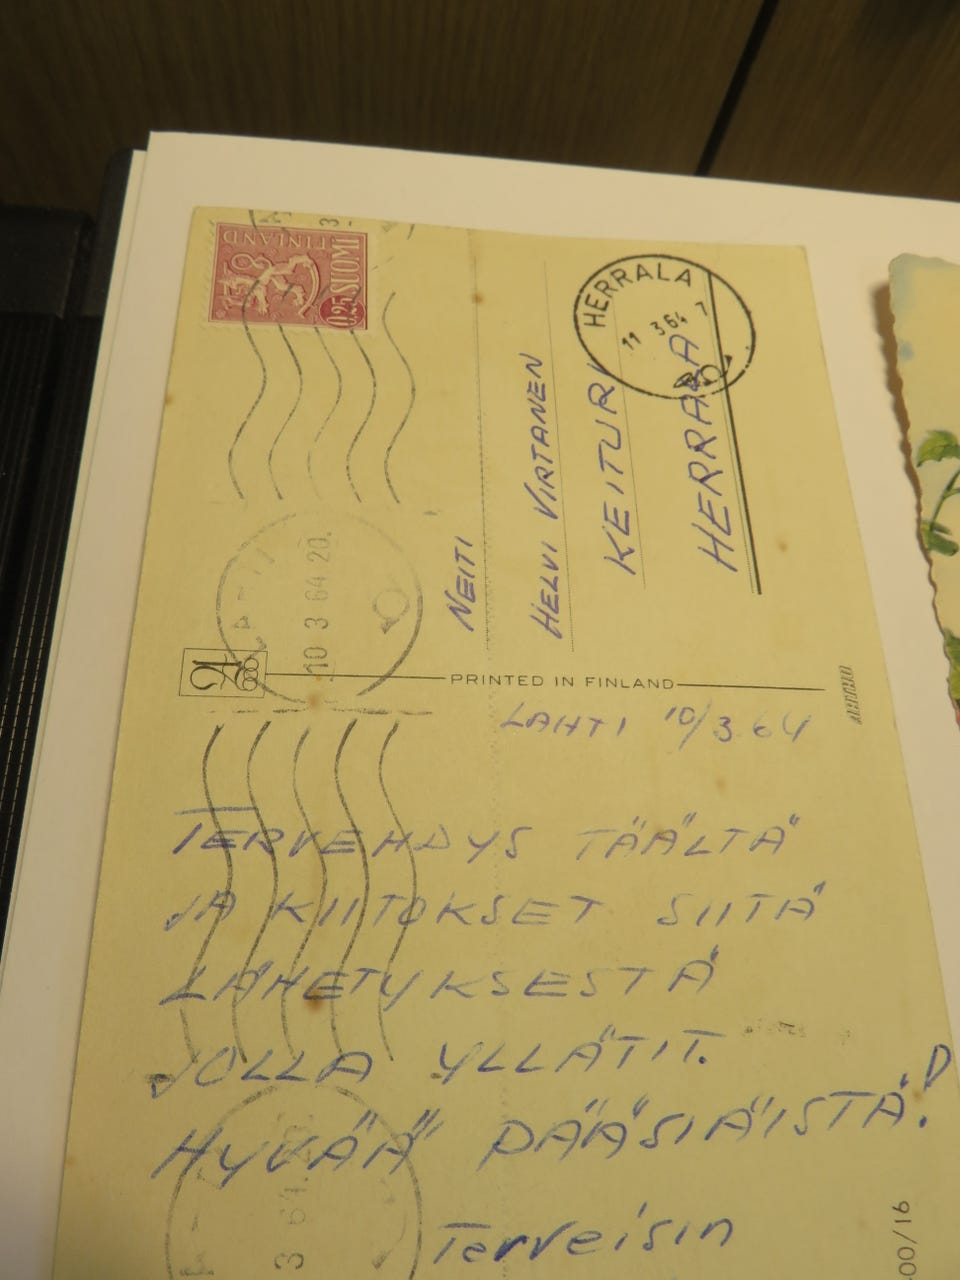 FINLAND
FINLAND
0,25 SUOMI
HERRALA
11 3 64 7
10 3 64 20.
NEITI
HELVI VIRTANEN
KEITURI
HERRALA
PRINTED IN FINLAND
LAHTI 10/3.64
TERVEHDYS TÄÄLTÄ
JA KIITOKSET SIITÄ
LÄHETYKSESTÄ
JOLLA YLLÄTIT.
HYVÄÄ PÄÄSIÄISTÄ!
Terveisin
3 64
00/16